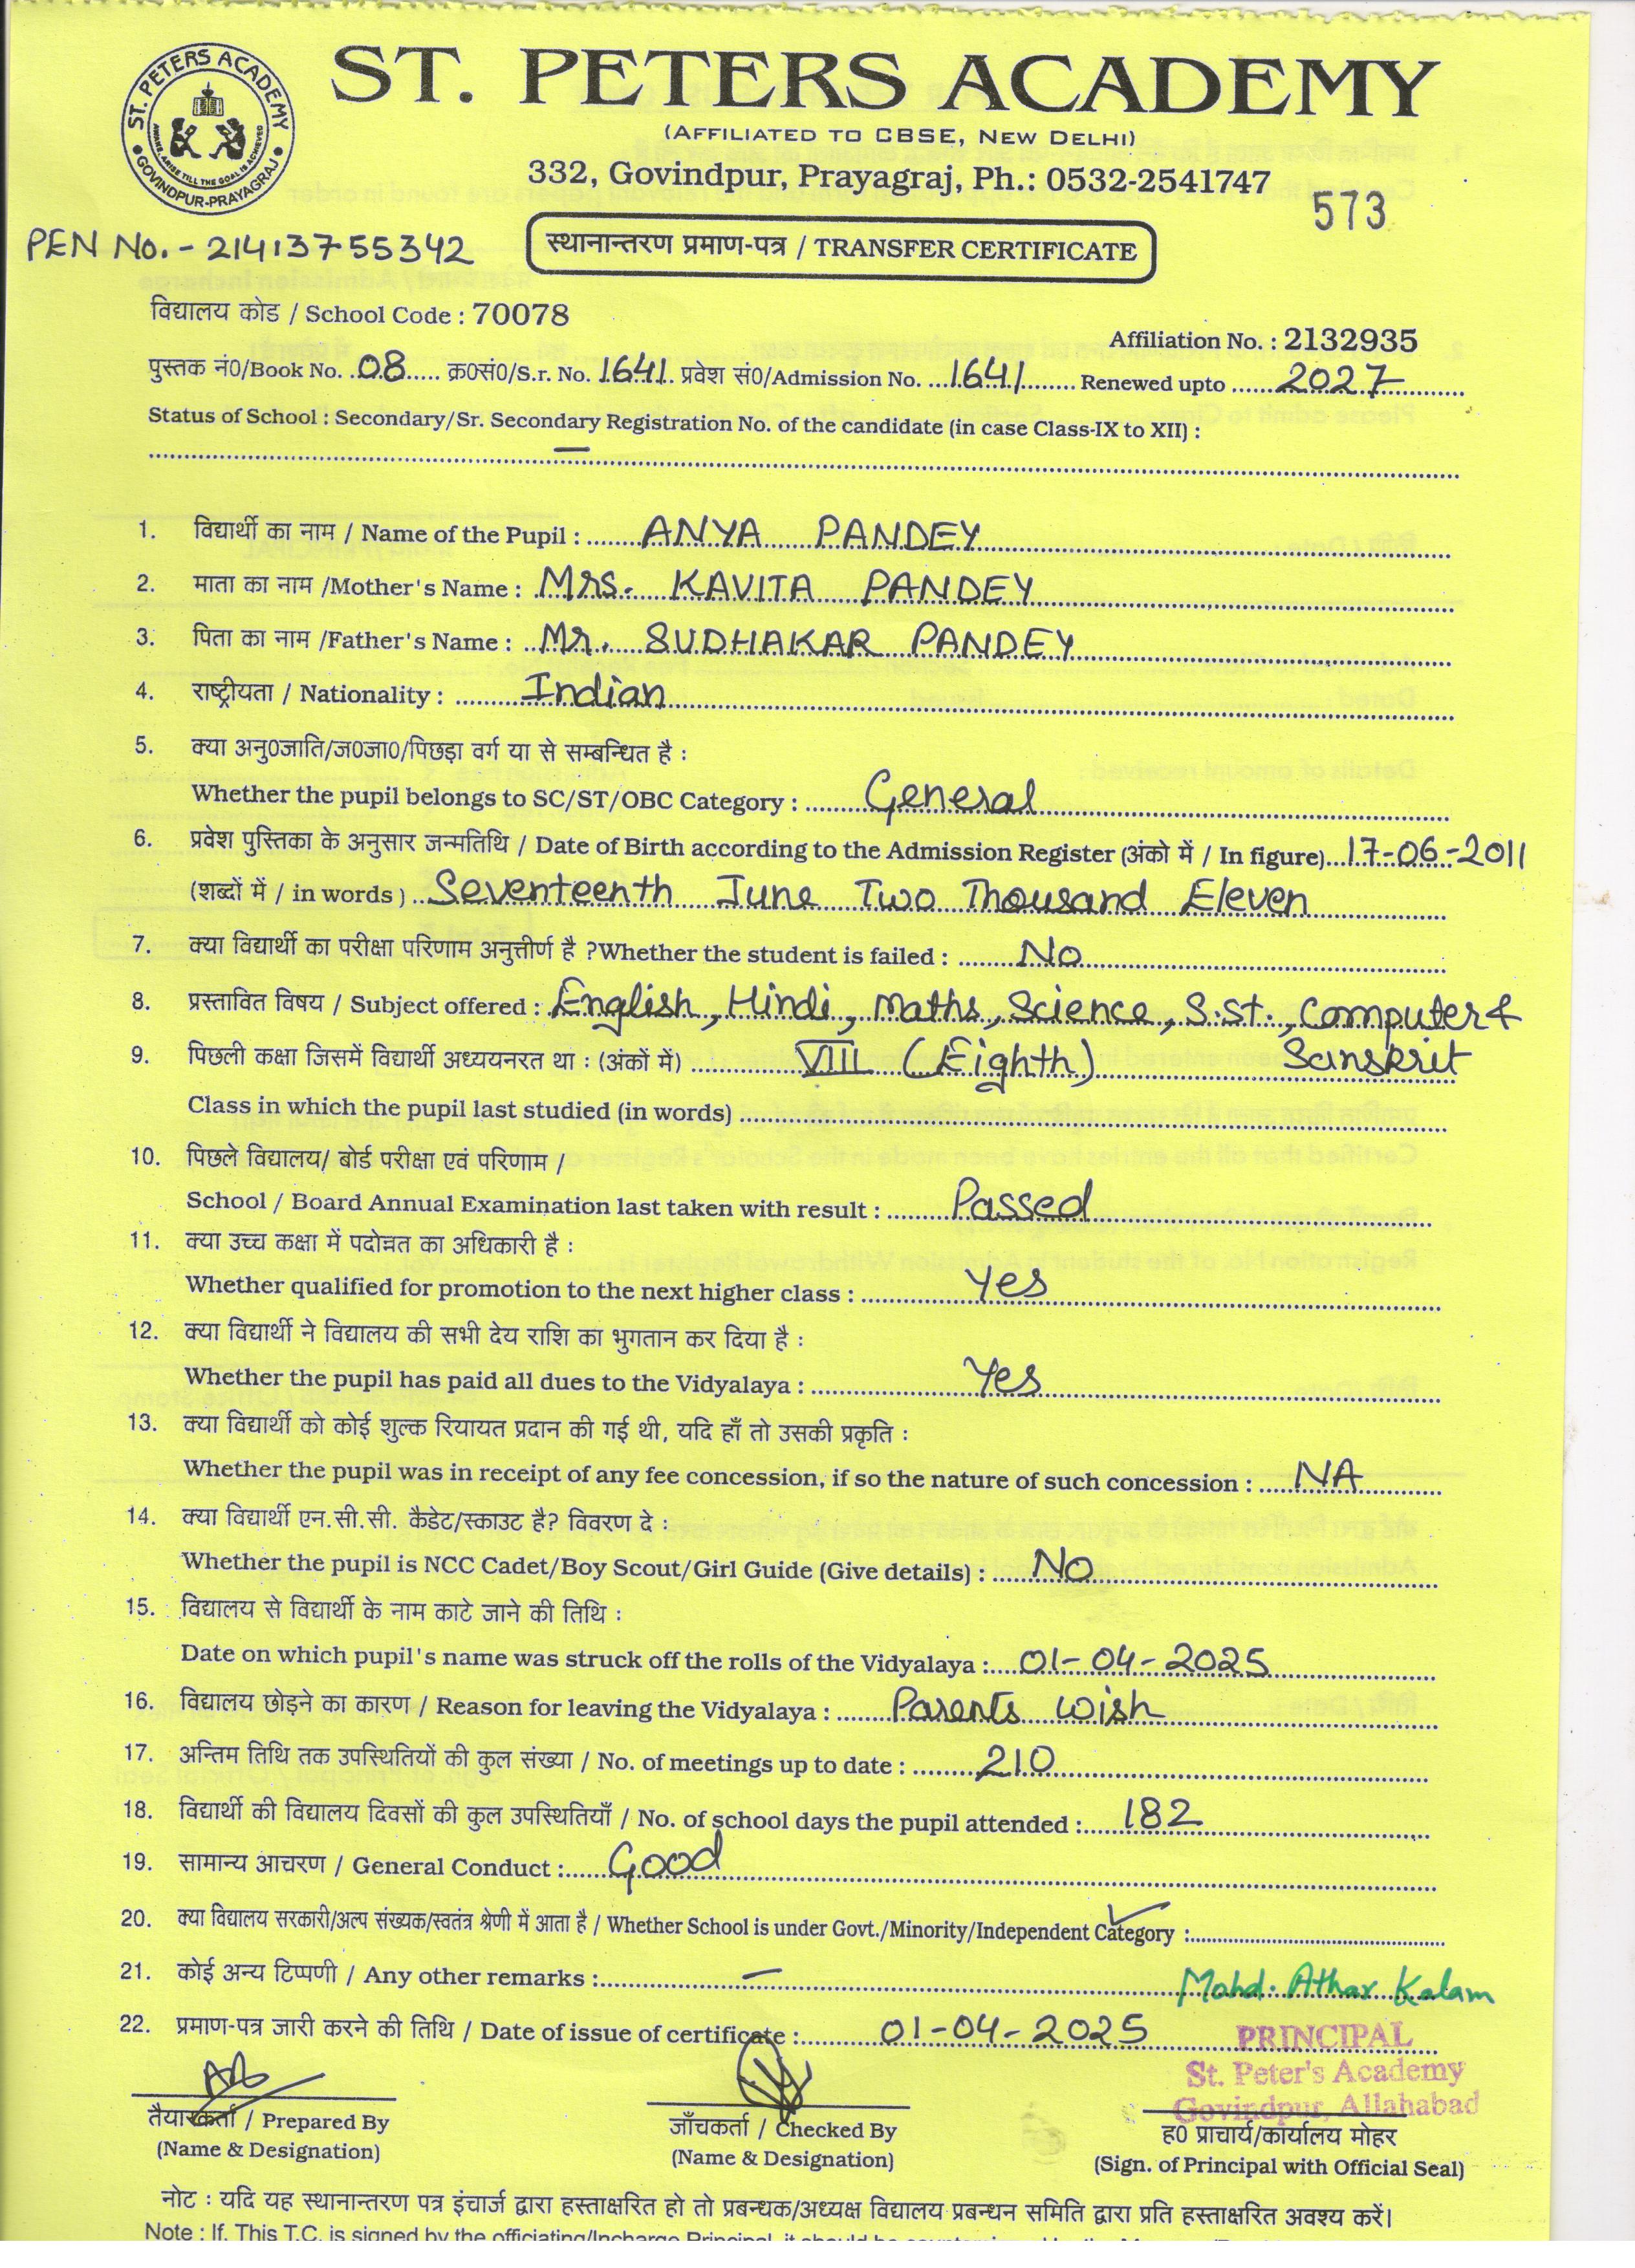 ST. PETERS ACADEMY
ST. PETERS ACADEMY
AWAKE, ARISE TILL THE GOAL IS ACHIEVED
GOVINDPUR-PRAYAGRAJ
(AFFILIATED TO CBSE, NEW DELHI)
332, Govindpur, Prayagraj, Ph.: 0532-2541747
573
PEN No. - 21413755342
स्थानान्तरण प्रमाण-पत्र / TRANSFER CERTIFICATE
विद्यालय कोड / School Code : 70078
Affiliation No. : 2132935
पुस्तक नं0/Book No. 08 क्र0सं0/S.r. No. 1641 प्रवेश सं0/Admission No. 1641 Renewed upto 2027
Status of School : Secondary/Sr. Secondary Registration No. of the candidate (in case Class-IX to XII) :
—
1. विद्यार्थी का नाम / Name of the Pupil : ANYA PANDEY
2. माता का नाम /Mother's Name : Mrs. KAVITA PANDEY
3. पिता का नाम /Father's Name : Mr. SUDHAKAR PANDEY
4. राष्ट्रीयता / Nationality : Indian
5. क्या अनु0जाति/ज0जा0/पिछड़ा वर्ग या से सम्बन्धित है :
Whether the pupil belongs to SC/ST/OBC Category : General
6. प्रवेश पुस्तिका के अनुसार जन्मतिथि / Date of Birth according to the Admission Register (अंको में / In figure) 17-06-2011
(शब्दों में / in words ) Seventeenth June Two Thousand Eleven
7. क्या विद्यार्थी का परीक्षा परिणाम अनुत्तीर्ण है ?Whether the student is failed : No
8. प्रस्तावित विषय / Subject offered : English, Hindi, Maths, Science, S.St., Computer &
Sanskrit
9. पिछली कक्षा जिसमें विद्यार्थी अध्ययनरत था : (अंकों में) VIII (Eighth)
Class in which the pupil last studied (in words)
10. पिछले विद्यालय/ बोर्ड परीक्षा एवं परिणाम /
School / Board Annual Examination last taken with result : Passed
11. क्या उच्च कक्षा में पदोन्नत का अधिकारी है :
Whether qualified for promotion to the next higher class : Yes
12. क्या विद्यार्थी ने विद्यालय की सभी देय राशि का भुगतान कर दिया है :
Whether the pupil has paid all dues to the Vidyalaya : Yes
13. क्या विद्यार्थी को कोई शुल्क रियायत प्रदान की गई थी, यदि हाँ तो उसकी प्रकृति :
Whether the pupil was in receipt of any fee concession, if so the nature of such concession : NA
14. क्या विद्यार्थी एन.सी.सी. कैडेट/स्काउट है? विवरण दे :
Whether the pupil is NCC Cadet/Boy Scout/Girl Guide (Give details) : No
15. विद्यालय से विद्यार्थी के नाम काटे जाने की तिथि :
Date on which pupil's name was struck off the rolls of the Vidyalaya : 01-04-2025
16. विद्यालय छोड़ने का कारण / Reason for leaving the Vidyalaya : Parents wish
17. अन्तिम तिथि तक उपस्थितियों की कुल संख्या / No. of meetings up to date : 210
18. विद्यार्थी की विद्यालय दिवसों की कुल उपस्थितियाँ / No. of school days the pupil attended : 182
19. सामान्य आचरण / General Conduct : Good
20. क्या विद्यालय सरकारी/अल्प संख्यक/स्वतंत्र श्रेणी में आता है / Whether School is under Govt./Minority/Independent Category :
21. कोई अन्य टिप्पणी / Any other remarks : —
Mohd. Athar Kalam
22. प्रमाण-पत्र जारी करने की तिथि / Date of issue of certificate : 01-04-2025
PRINCIPAL
St. Peter's Academy
Govindpur, Allahabad
तैयारकर्ता / Prepared By
(Name & Designation)
जाँचकर्ता / Checked By
(Name & Designation)
ह0 प्राचार्य/कार्यालय मोहर
(Sign. of Principal with Official Seal)
नोट : यदि यह स्थानान्तरण पत्र इंचार्ज द्वारा हस्ताक्षरित हो तो प्रबन्धक/अध्यक्ष विद्यालय प्रबन्धन समिति द्वारा प्रति हस्ताक्षरित अवश्य करें।
Note : If. This T.C. is signed by the officiating/Incharge Principal, it should be